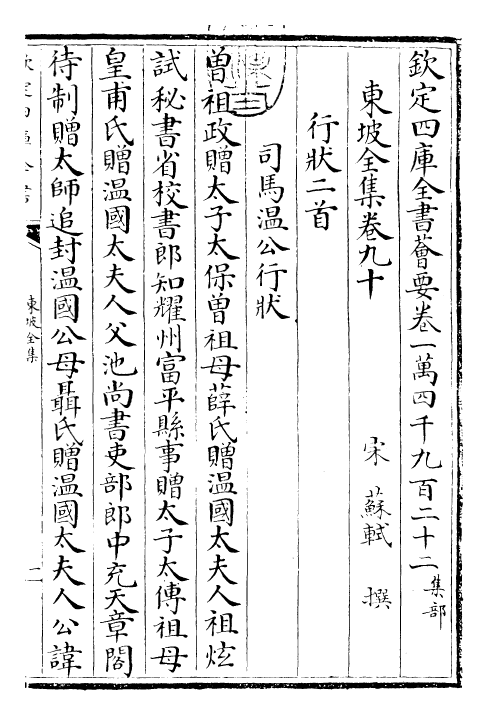 欽定四庫全書薈要卷一萬四千九百二十二集部
東坡全集卷九十
宋 蘇軾 撰
行狀二首
司馬溫公行狀
曾祖政贈太子太保曾祖母薛氏贈溫國太夫人祖炫
試秘書省校書郎知耀州富平縣事贈太子太傅祖母
皇甫氏贈溫國太夫人父池尚書吏部郎中充天章閣
待制贈太師追封溫國公母聶氏贈溫國太夫人公諱
東坡全集